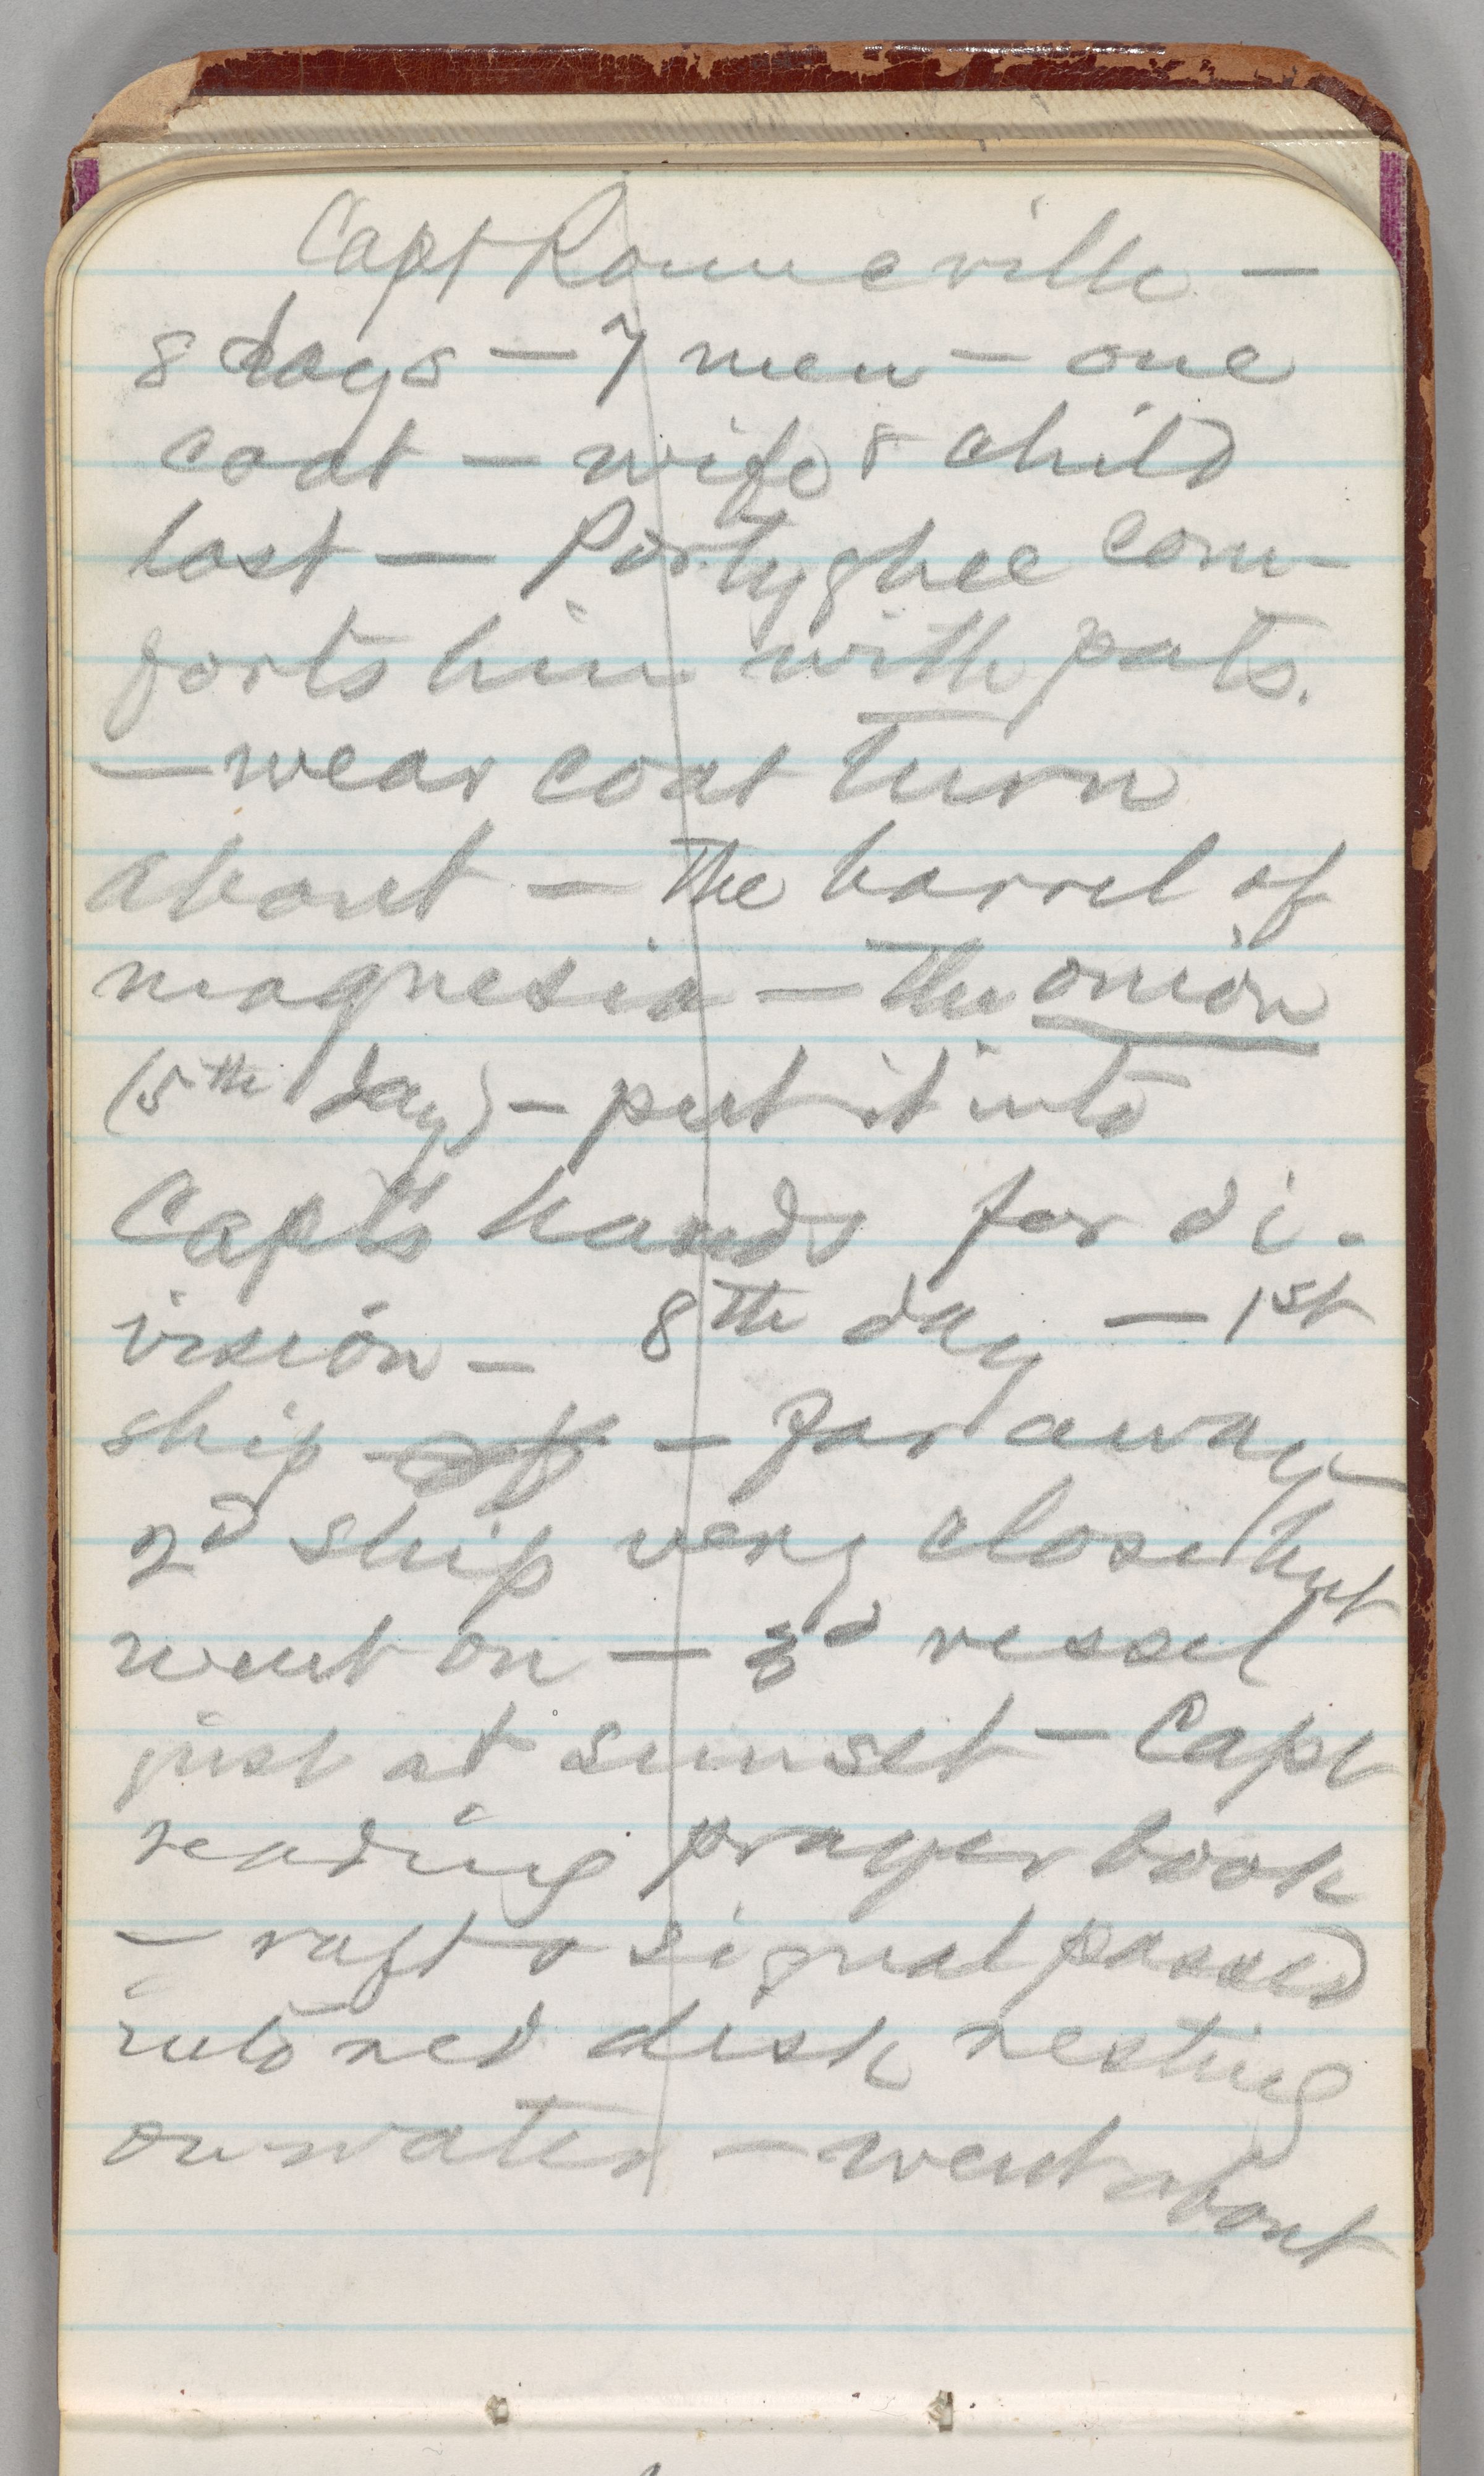 Capt Rouneville —
8 days — 7 men — one
coat — wife & child
lost — Portyghee com-
forts him with pats.
— wear coat turn
about — The barrel of
magnesia — the onion
(5th day) — put it into
Capt's hands for di-
vision — 8th day — 1st
ship — far away —
2d ship very close but
went on — 3d vessel
just at sunset — Capt
reading prayer book
— raft & signal passed
into red disk resting
on water — went about